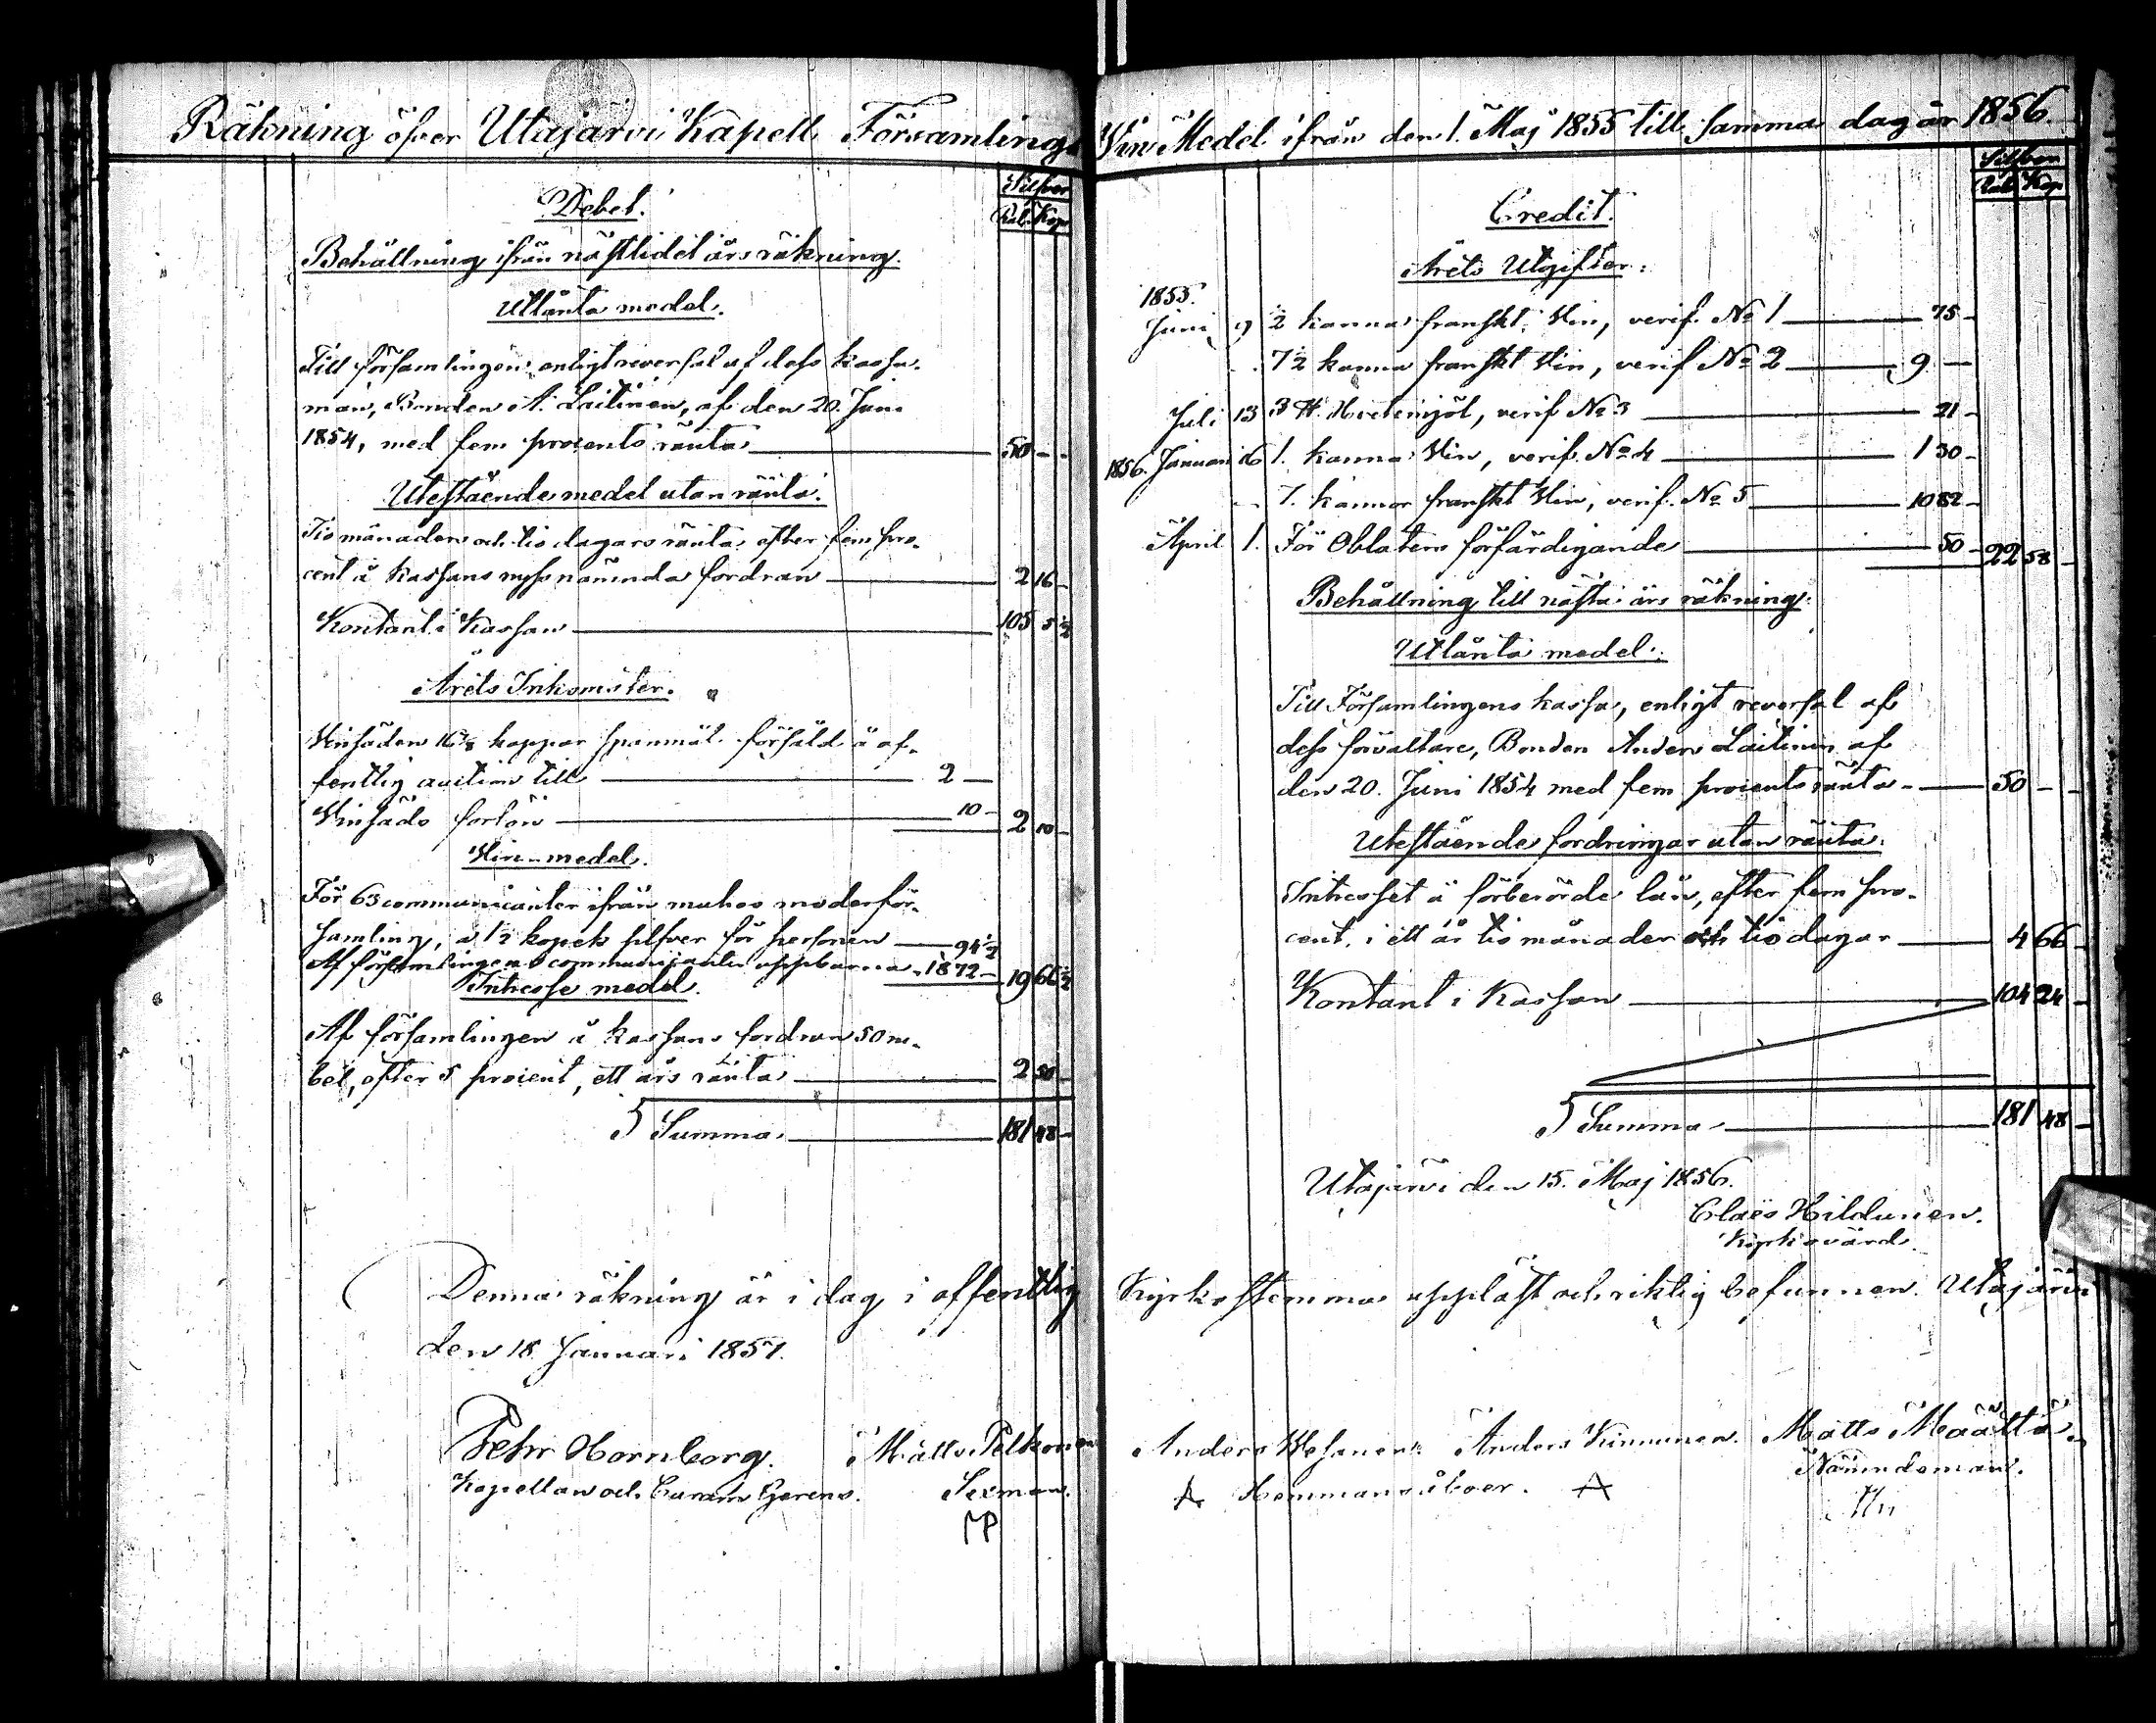 Räkning öfver Utajärvi Kapell Församlings
Silfver
Rub. Kop.
Debet.
Behållning ifrån nästlidet års räkning.
Utlånta medel.
Till församlingen enligt reversal af dess kassa-
man, Bonden A. Laitinen, af den 20. Juni
1854, med fem procents ränta 50 - -
Utestående medel utan ränta.
Tio månaders och tio dagars ränta efter fem pro-
cent å kassans nyss nämnda fordran 2 16 -
Kontant i Kassan 105 5 1/2
Årets Inkomster.
Vinsäden 16 7/8 kappar spanmål försåld å of-
fentlig auction till 2 -
Vinsäds 10 - 2 10 -
Vin-medel.
För 63 communicanter ifrån muhos moderför-
samling, a 1 1/2 kopek silfver för personen 94 1/2
Af församlingens communicanter uppburna 18 72 - 19 66 1/2
Intresse medel.
Af församlingen å kassans fordran 50 ru-
bel, efter 5 procent, ett års ränta 2 50 -
Summa 181 48 -
Denna räkning är i dag i offentlig
den 18 Januari 1857.
Pehr Hornborg. Matts Pelkonen
Kapellan och Curam Gerens. Sexman.
MP
Vin Medel ifrån den 1. Maj 1855 till samma dag år 1856.
Silfver
Rub. Kop
Credit.
Årets Utgifter.
1855.
Juni 9 1/2 kanna franskt Vin, verif. No 1 75 -
7 1/2 kanna franskt Vin, verif No 2 9 -
Juli 13 3 ℔. Hvetemjöl, verif No 3 21 -
1856. Januari 16 1. kanna Vin, verif. No 4 1 30 -
7. kannor franskt Vin, verif. No 5 10 82 -
April 1. För Oblatens förfärdigande 50 - 22 58 -
Behållning till nästa års räkning.
Utlånta medel.
Till Församlingens kassa, enligt reversal af
dess förvaltare, Bonden Anders Laitinen af
den 20. Juni 1854 med fem procents ränta - 50 - -
Utestående fordringar utan ränta.
Intresset å förberörde lån, efter fem pro-
cent, i ett år tio månader och tio dagar 4 66 -
Kontant i Kassan 104 24 -
Summa 181 48 -
Utajärvi den 15. Maj 1856.
Claës Hildunen.
Kyrkovärd.
Kyrkostemma uppläst och riktig befunnen. Utajärvi
Anders Anders Kinnunen. Matts Määttä.
Hemmansåboer. Nämndeman.